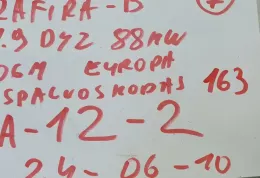 ZAFIRA-B
1.9 DYZ 88KW
OGM EUROPA
SPALVOS KODAS 163
A-12-2
24-06-10